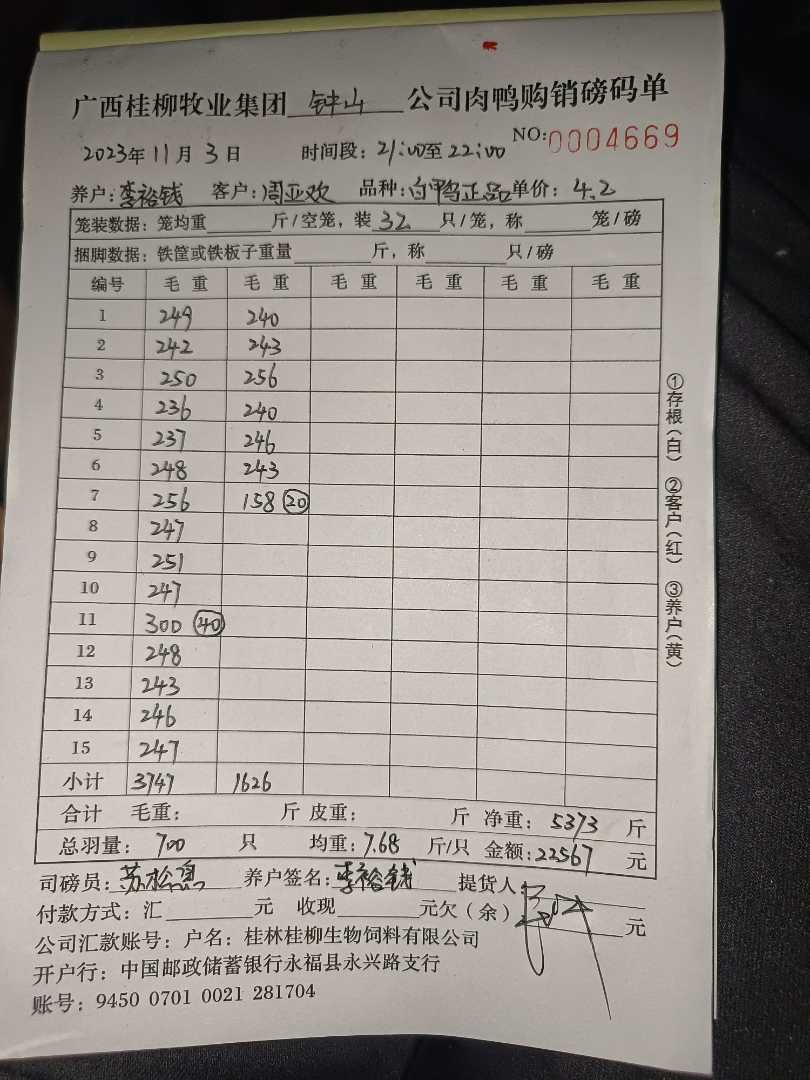 广西桂柳牧业集团 钟山 公司肉鸭购销磅码单
2023年11月3日 时间段：21:00至22:00 NO:0004669
养户：李裕钱 客户：周亚欢 品种：白鸭正品 单价：4.2
笼装数据：笼均重 斤/空笼，装 32 只/笼，称 笼/磅
捆脚数据：铁筐或铁板子重量 斤，称 只/磅
编号 毛重 毛重 毛重 毛重 毛重 毛重
1 249 240
2 242 243
3 250 256
4 236 240
5 237 246
6 248 243
7 256 158 20
8 247
9 251
10 247
11 300 40
12 248
13 243
14 246
15 247
小计 3747 1626
合计 毛重： 斤 皮重： 斤 净重：5373 斤
总羽量：700 只 均重：7.68 斤/只 金额：22567 元
司磅员：苏松 养户签名：李裕钱 提货人
付款方式：汇 元 收现 元欠（余） 元
公司汇款账号：户名：桂林桂柳生物饲料有限公司
开户行：中国邮政储蓄银行永福县永兴路支行
账号：9450 0701 0021 281704
①存根（白） ②客户（红） ③养户（黄）